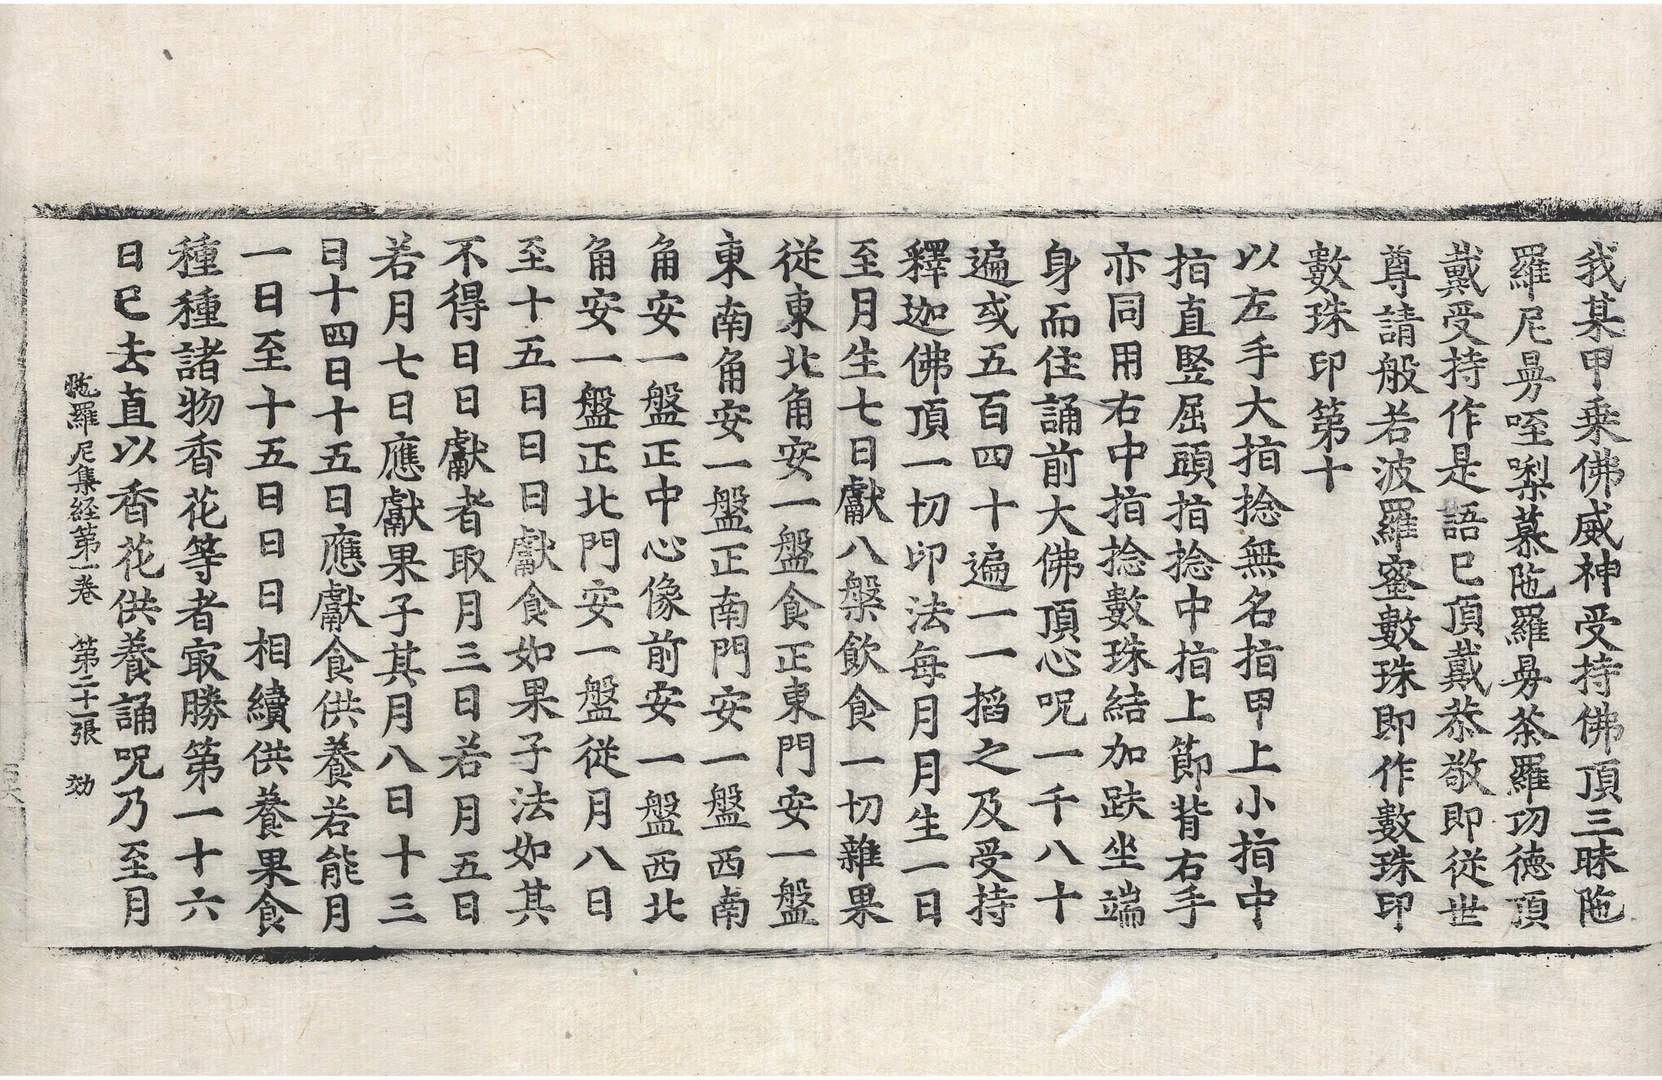 我某甲乗佛威神受持佛頂三昧陁
羅尼㬅咥唎慕陁羅㬅荼羅功德頂
戴受持作是語已頂戴恭敬即從世
尊請般若波羅蜜數珠即作數珠印
數珠印第十
以左手大指捻無名指甲上小指中
指直竪屈頭指捻中指上節背右手
亦同用右中指捻數珠結加趺坐端
身而住誦前大佛頂心呪一千八十
遍或五百四十遍一一搯之及受持
釋迦佛頂一切印法每月月生一日
至月生七日獻八槃飲食一切雜果
從東北角安一盤食正東門安一盤
東南角安一盤正南門安一盤西南
角安一盤正中心像前安一盤西北
角安一盤正北門安一盤從月八日
至十五日日日獻食如果子法如其
不得日日獻者取月三日若月五日
若月七日應獻果子其月八日十三
日十四日十五日應獻食供養若能月
一日至十五日日日相續供養果食
種種諸物香花等者㝡勝第一十六
日已去直以香花供養誦呪乃至月
陁羅尼集経第一卷 第二十張 効